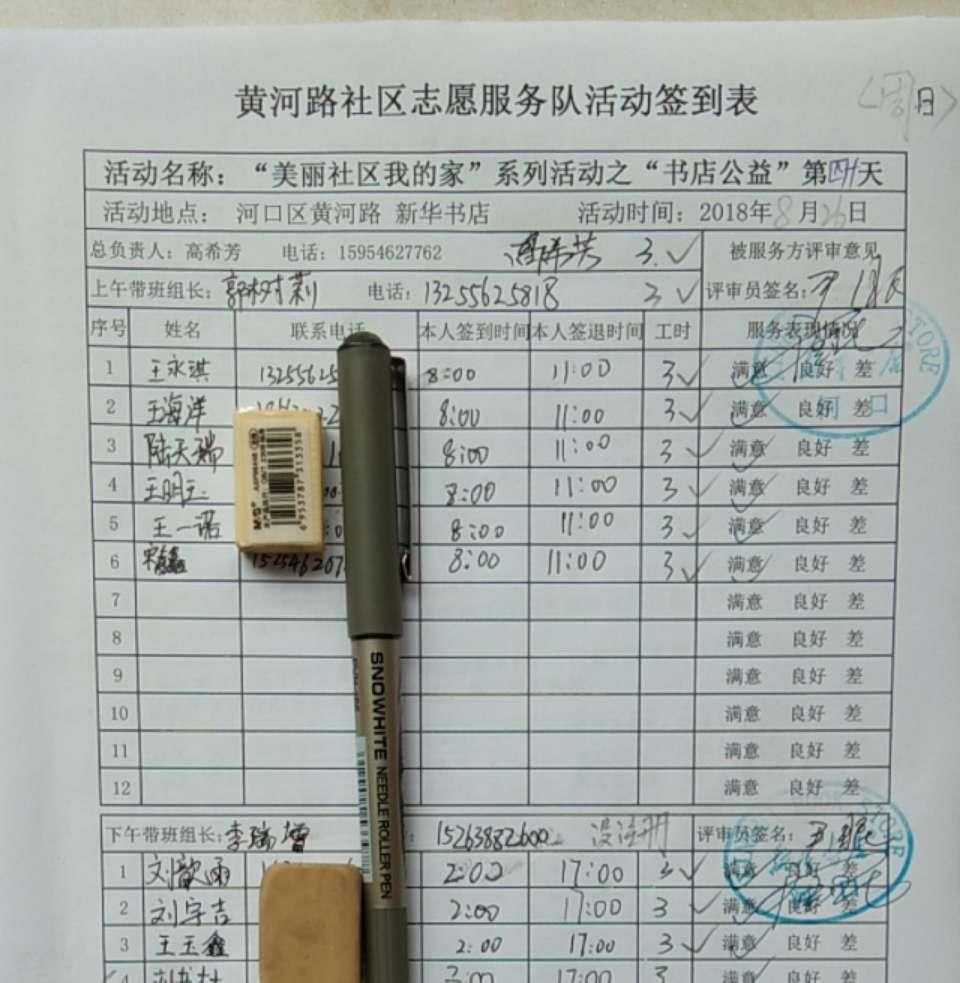 黄河路社区志愿服务队活动签到表
日
活动名称：“美丽社区我的家”系列活动之“书店公益”第 天
活动地点： 河口区黄河路 新华书店 活动时间：2018年8月26日
总负责人：高希芳 电话：15954627762 高希芳 3 被服务方评审意见
上午带班组长： 电话：13255625818 3 评审员签名：
序号 姓名 联系电话 本人签到时间 本人签退时间 工时 服务表现情况
1 王永淇 8:00 11:00 3 满意 良好 差
2 王海洋 8:00 11:00 3 满意 良好 差
3 陆天瑞 8:00 11:00 3 满意 良好 差
4 王明玉 8:00 11:00 3 满意 良好 差
5 王一诺 8:00 11:00 3 满意 良好 差
6 8:00 11:00 3 满意 良好 差
7 满意 良好 差
8 满意 良好 差
9 满意 良好 差
10 满意 良好 差
11 满意 良好 差
12 满意 良好 差
下午带班组长：李瑞增 15263882600 没注册 评审员签名：
1 刘歆雨 2:00 17:00 3 满意 良好 差
2 刘宇吉 2:00 17:00 3 满意 良好 差
3 王玉鑫 2:00 17:00 3 满意 良好 差
4 2:00 17:00 3 满意 良好 差
M&G
6953787313358
SNOWHITE NEEDLE ROLLER PEN
STORE
河口
STORE